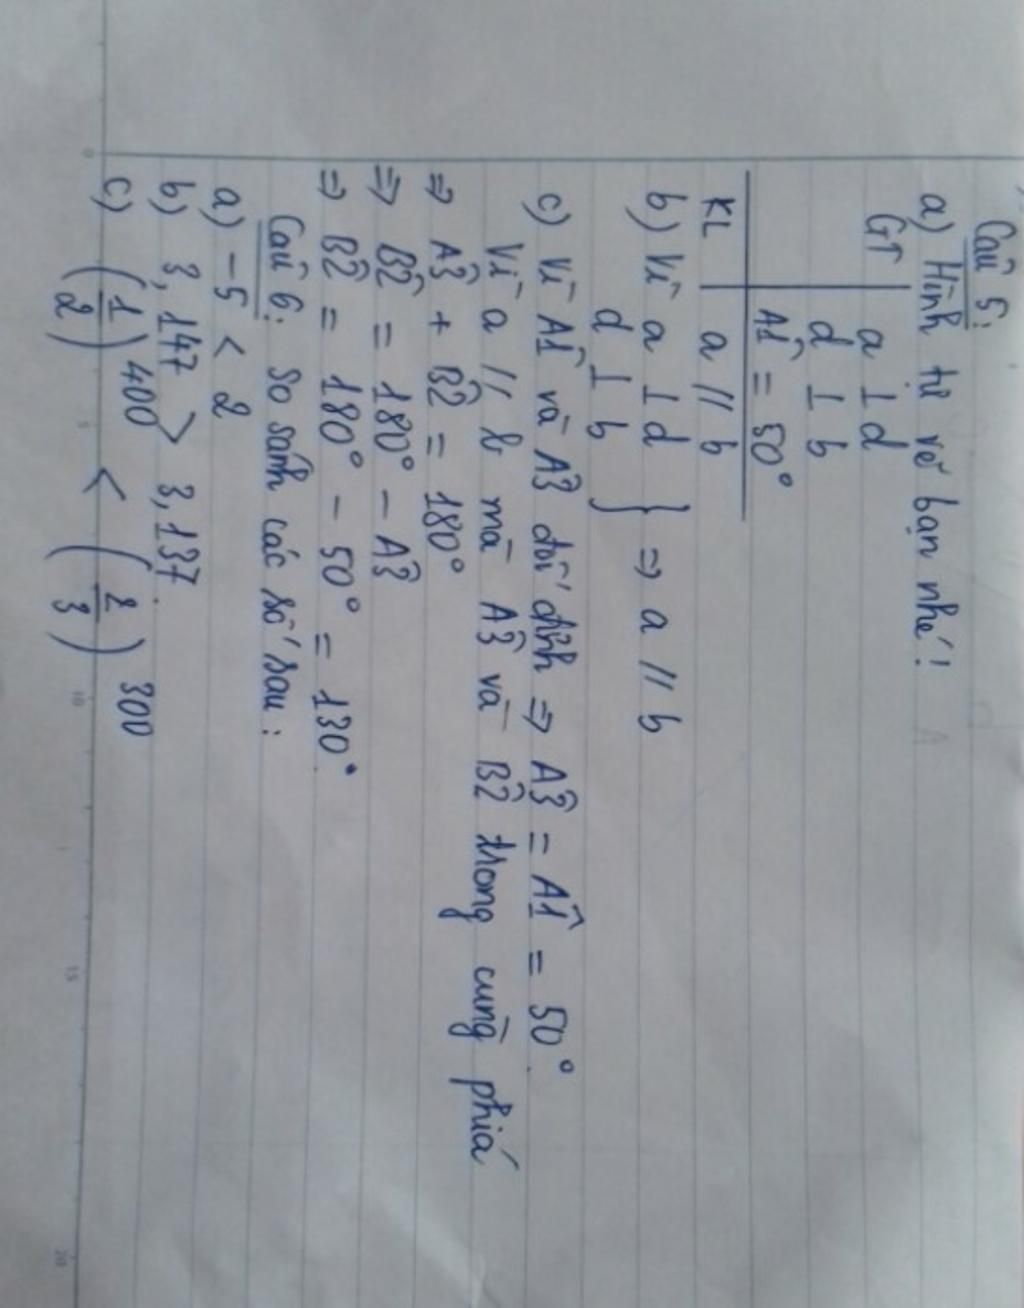 Câu 5:
a) Hình tự vẽ bạn nhé!
GT a ⊥ d
d ⊥ b
Â1 = 50°
KL a // b
b) Vì a ⊥ d } ⇒ a // b
d ⊥ b
c) Vì Â1 và Â3 đối đỉnh ⇒ Â3 = Â1 = 50°.
Vì a // b mà Â3 và B̂2 trong cùng phía
⇒ Â3 + B̂2 = 180°
⇒ B̂2 = 180° - Â3
⇒ B̂2 = 180° - 50° = 130°.
Câu 6: So sánh các số sau:
a) -5 < 2
b) 3,147 > 3,137.
c) (1/2) 400 < (2/3) 300
0 5 10 15 20